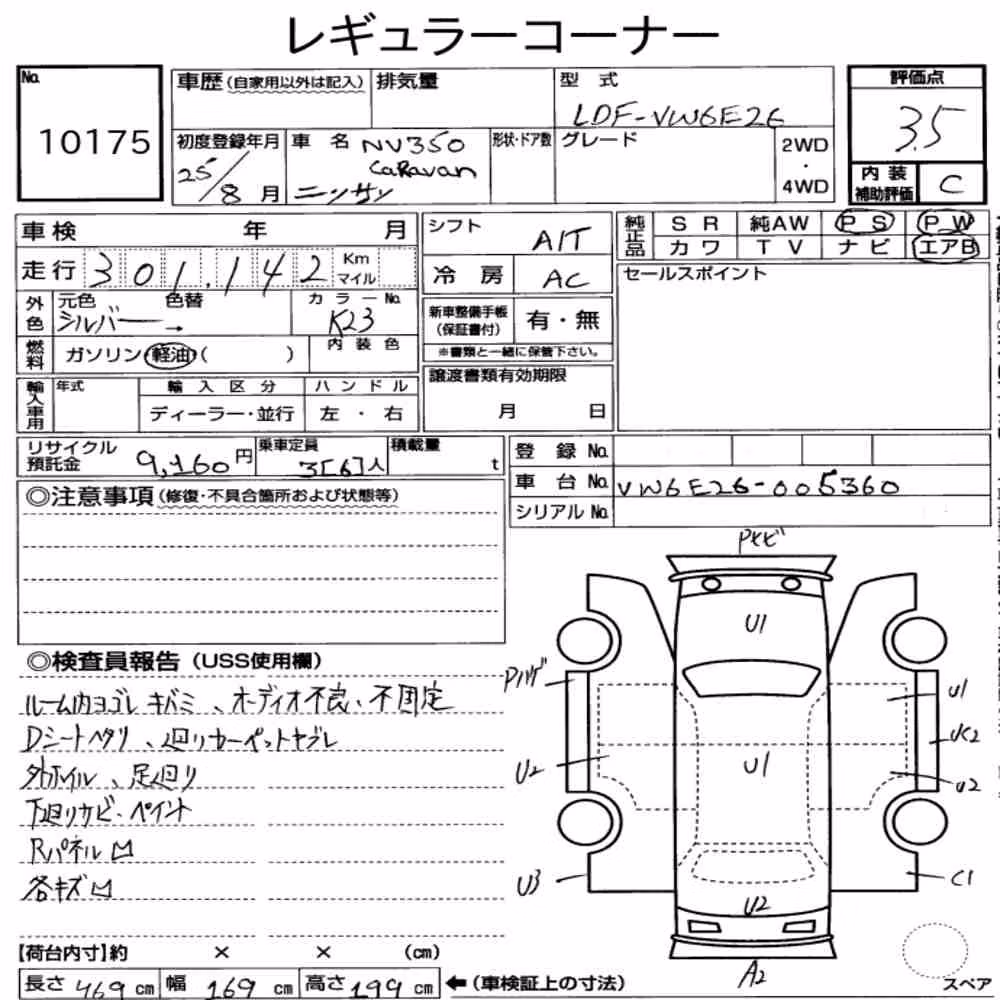 レギュラーコーナー
No. 10175
車歴(自家用以外は記入) 排気量 型式 LDF-VW6E26
初度登録年月 25/8月 車名 NV350 Caravan ニッサン 形状・ドア数 グレード 2WD・4WD
評価点 3.5
内装補助評価 C
車検 年 月 シフト A/T
純正品 SR 純AW PS PW
カワ TV ナビ エアB
走行 301,142 Km マイル 冷房 AC
セールスポイント
外色 元色 シルバー → 色替 カラーNo. K23
新車整備手帳(保証書付) 有・無
※書類と一緒に保管下さい。
燃料 ガソリン・軽油・( ) 内装色
譲渡書類有効期限 月 日
輸入車用 年式 輸入区分 ハンドル
ディーラー・並行 左・右
リサイクル預託金 9,160円 乗車定員 3[6]人 積載量 t
登録No.
車台No. VW6E26-005360
シリアルNo.
◎注意事項(修復・不具合箇所および状態等)
◎検査員報告(USS使用欄)
ルーム内ヨゴレ キバミ、オーディオ不良、不固定
Dシートヘタリ、廻りカーペットヤブレ
外ホイル、足廻り
下廻りサビ・ペイント
Rパネル凹
各キズ凹
Pトビ
U1
Pハゲ
U1
UK2
U2
U1
U2
U3
C1
U2
A2
【荷台内寸】約 × × (cm)
長さ 469 cm 幅 169 cm 高さ 199 cm ←(車検証上の寸法)
スペア